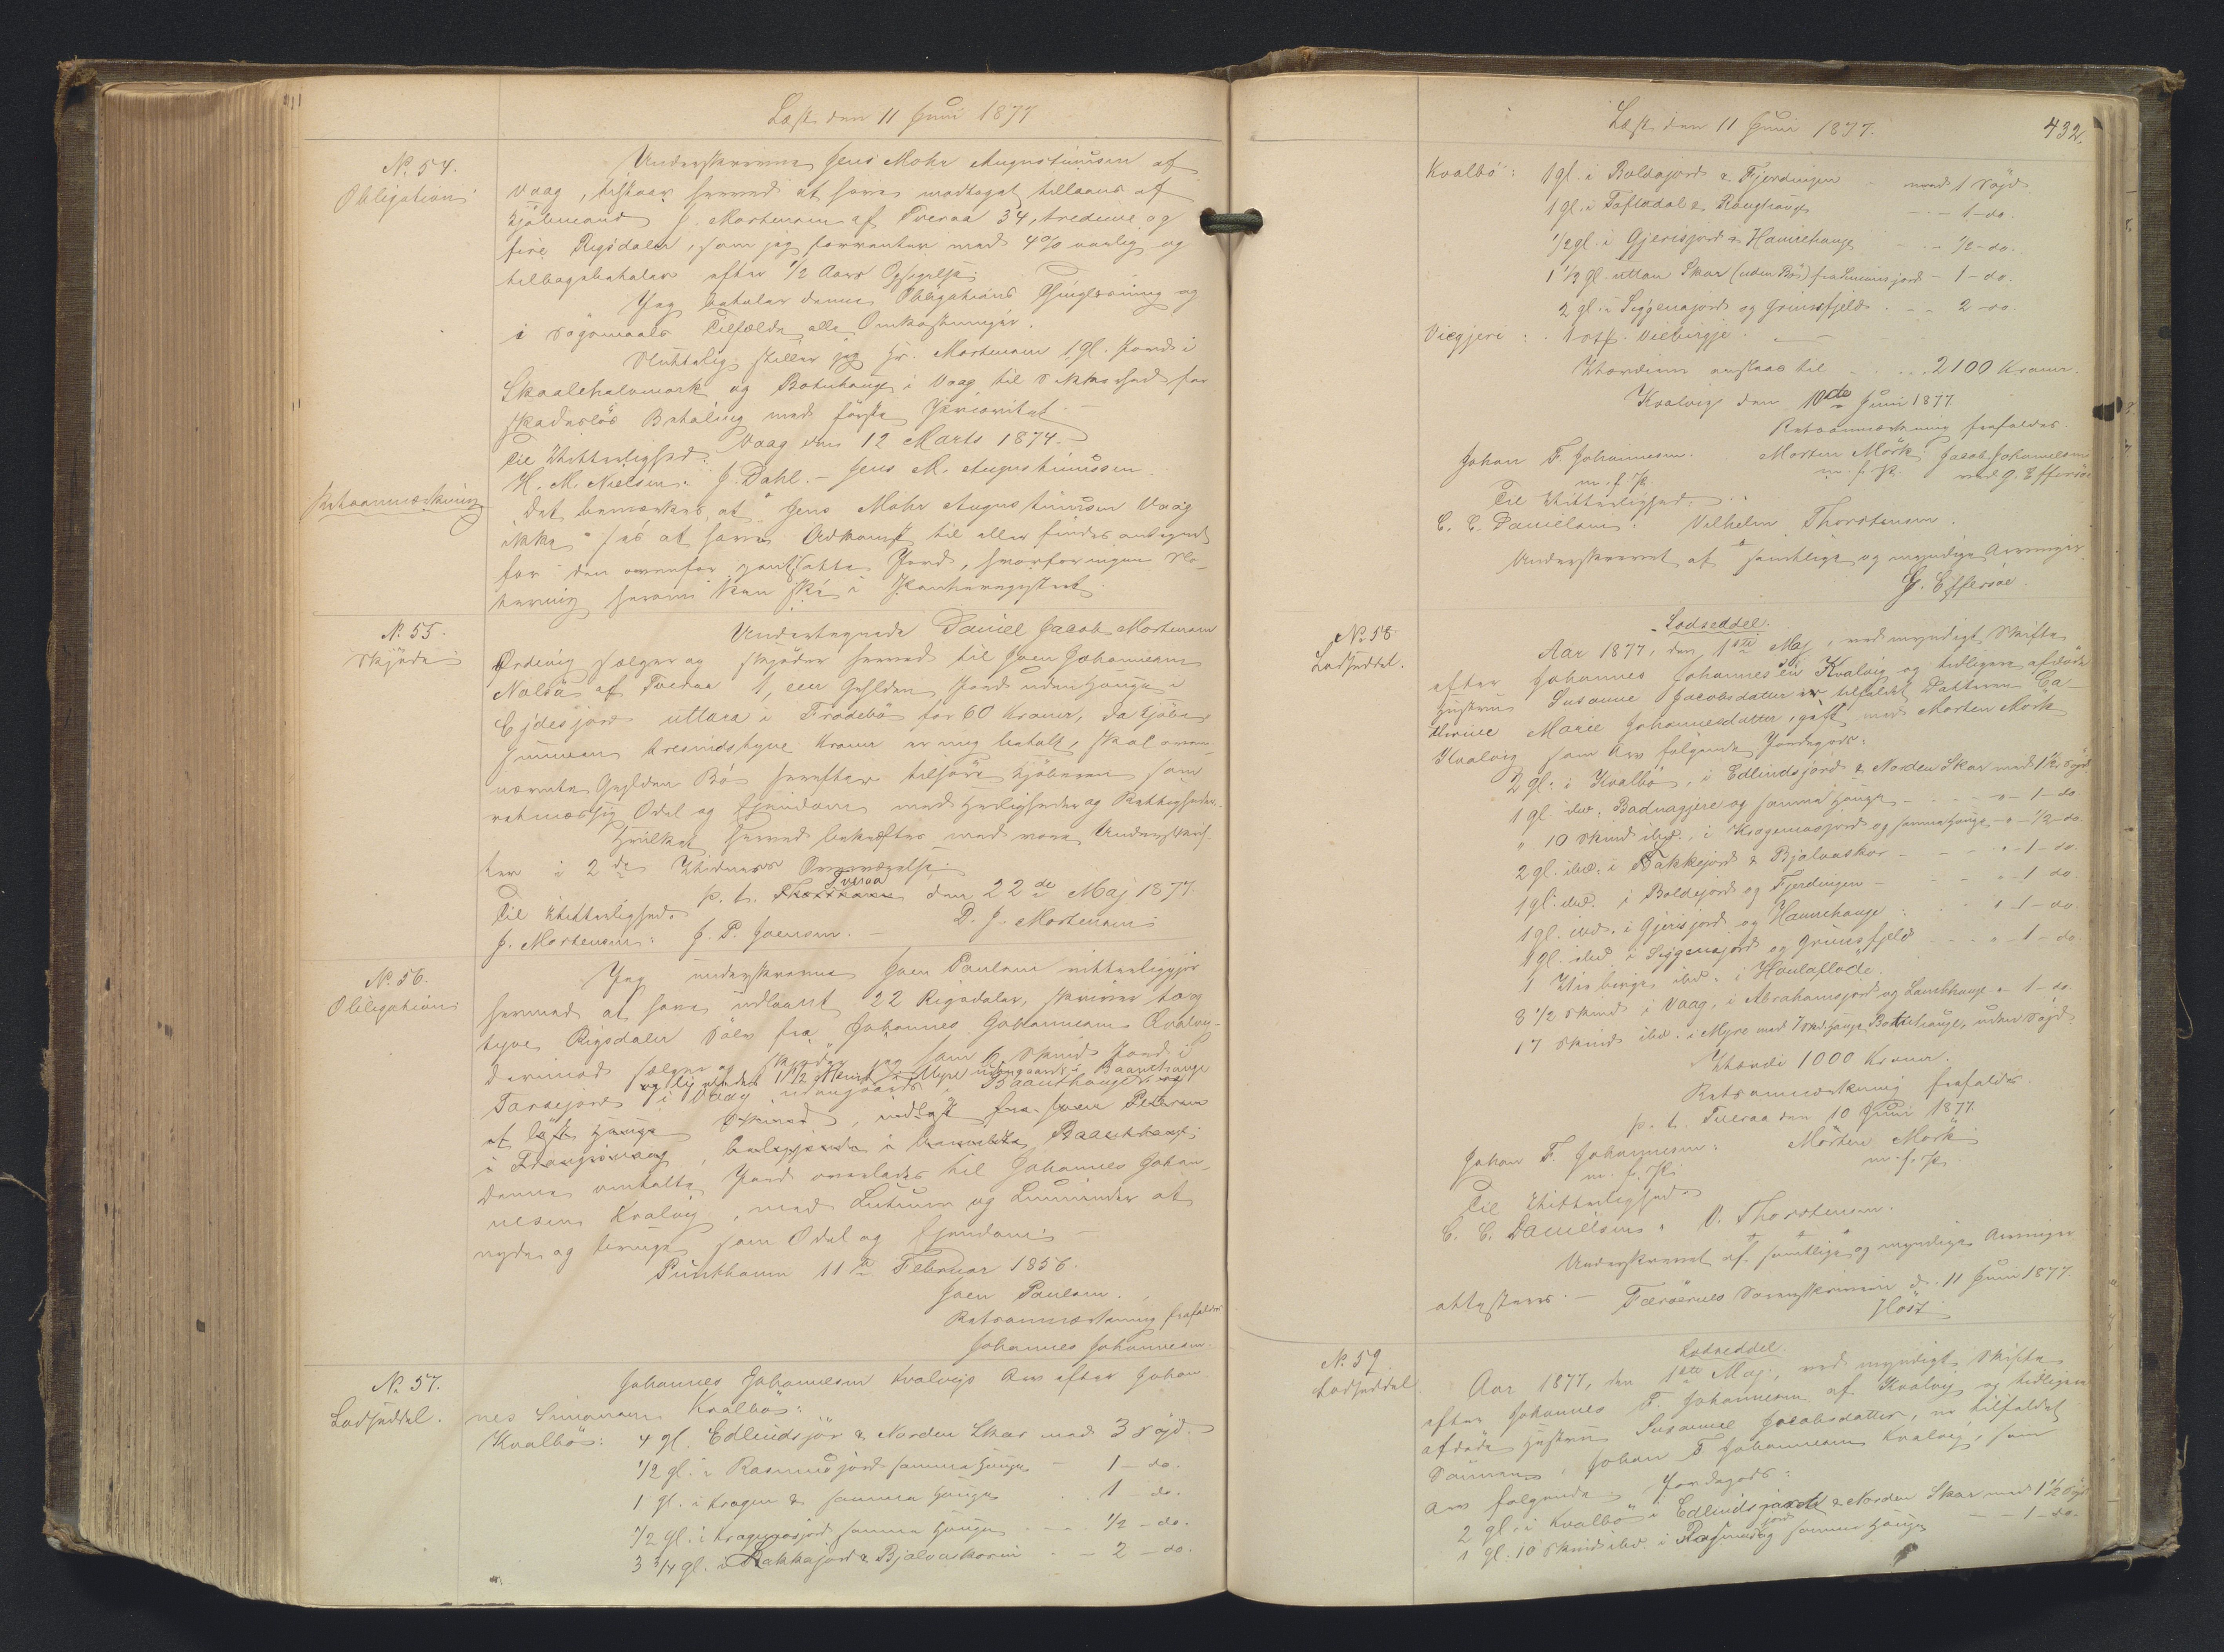 Læst den 11 Juni 1877
No. 54.
Obligation
Underskrevne Jens Mohr Augustinussen af
Vaag, tilstaar herved at have modtaget tillaans af
Kjøbmand J. Mortensen af Tveraa 34, tredive og
fire Rigsdaler, som jeg forrenter med 4% aarlig og
tilbagebetaler efter 1/2 Aars Opsigelse.
Jeg betaler denne Obligations Thinglæsning og
i Søgsmaals Tilfælde alle Omkostninger.
Sluttelig stiller jeg Hr. Mortensen 1 gl. Jord i
Skaalehalvmark og Botnhauge i Vaag til Sikkerhed for
skadesløs Betaling med første Prioritet.
Vaag den 12 Marts 1874.
Til Vitterlighed:
H. M. Nielsen. J. Dahl. – Jens M. Augustinussen.
Retsanmærkning
Det bemærkes, at Jens Mohr Augustinussen Vaag
ikke ses at have Adkomst til eller findes antegnet
for den ovenfor pantsatte Jord, hvorfor ingen No-
tering herom kan ske i Panteregistret.
No. 55.
Skjøde
Undertegnede Daniel Jacob Mortensen
Ørdevig sælger og skjøder herved til Joen Johannesen
Nolsø af Tveraa 1, een Gylden Jord uden Hauge i
Ejdesjord uttara i Frodebø for 60 Kroner, da Kjøbe-
summen tresindstyve Kroner er mig betalt, skal oven-
nævnte Gylden Bø herefter tilhøre Kjøberen som
retmæssig Odel og Ejendom med Herligheder og Rettigheder.
Hvilket herved bekræftes med vore Underskrif-
ter i 2de Vidners Overværelse.
Tveraa
p. t. den 22de Maj 1877.
Til Vitterlighed.
J. Mortensen: J. P. Joensen. – D. J. Mortensen
No. 56.
Obligation
Jeg underskrevne Joen Poulsen vitterliggjør
hermed at have udlaant 22 Rigsdaler, skriver to og
tyve Rigsdaler Sølv fra Johannes Johannesen Qvalvig
Derimod sælger og skjøder jeg ham 6 Skind Jord i
og ligeledes 1 1/2 Skind i Myre udengaards i Baanthauge
Torsejord i Vaag udengaards i Baanthauge og
at Hauge , indløst fra Joen Petersen
i Trangisvaag, beliggende i Baanthauge.
Denne omtalte Jord overlades til Johannes Johan-
nesen Kvalvig, med Lutum og Lunnindum at
nyde og bruge som Odel og Ejendom –
Punthavn 11te Februar 1856.
Joen Poulsen.
Retsanmærkning frafaldes
Johannes Johannesen.
No. 57.
Lodseddel.
Johannes Johannesen Kvalvigs Arv efter Johan-
nes Simonsen Kvalbø:
Kvalbø: 4 gl. Edlindsjør & Norden Skar med 3 Søjd.
1/2 gl. i Rasmusjord samme Hauge – 1 – do.
1 gl. i Krogen & samme Hauge . . 1 – do.
1/2 gl. i Kragumasjord samme Hauge – – 1/2 – do.
3 3/4 gl. i Bakkajord & Bjalvaskorin – – 2 – do.
Læst den 11 Juni 1877.
432.
Kvalbø: 1 gl. i Boldajord & Fjerdingen – med 1 Søjd
1 gl. i Toftadal & Rønghauge – – 1 – do.
1/2 gl. i Gjerisjord & Hamrehauge – – 1/2 – do.
1 1/3 gl. uttan Skar (uden Bø) fra Simunsjord – 1 – do.
2 gl. i Siggenajord og Grimsfjeld – – 2 – do.
Viegjeri: 1
Værdien anslaas til . . . 2100 Kroner.
Kvalvig den 10de Juni 1877
Retsanmærkning frafaldes
Johan F. Johannesen. Morten Mørk. Jacob Johannesen
m. f. P. m. f. P. ved G. Effersøe
Til Vitterlighed:
C. C. Danielsen. Vilhelm Thorsteinsen.
Underskrevet af samtlige og myndige Arvinger
G. Effersøe.
No. 58
Lodseddel.
Lodseddel.
Aar 1877, den 1ste Maj, ved myndigt Skifte
efter Johannes Johannesen Kvalvig og tidligere afdøde
Hustru Susanne Jacobsdatter er tilfaldet Datteren Ca-
thrine Marie Johannesdatter, gift med Morten Mørk
Kvalvig som Arv følgende Jordegods:
2 gl. i Kvalbø, i Edlindsjord & Norden Skar med 1 1/2 Søjd
1 gl. ibd. Badnagjere og samme Hauge – – – 1 – do
" 10 Skind ibd. i Kragemasjord og samme Hauge – 1/2 – do.
2 gl. ibd. i Bakkejord & Bjalvaskor – – – – 1 – do.
1 gl. ibd. i Boldejord og Fjerdingen – – – 1 do.
1 gl. ibd. i Gjerisjord og Hamrehauge – 1 – do.
1 gl. ibd. i Siggenajord og Grimsfjeld – – – 1 – do.
1 ibd. i Houlafløde.
8 1/2 Skind i Vaag, i Abrahamsjord og Lambhauge – 1 – do
17 Skind ibd. i Myre med 7 Skd. Hauge Botnhauge, uden Søjd
Værdi 1000 Kroner.
Retsanmærkning frafaldes
p. t. Tveraa den 10 Juni 1877.
Johan F. Johannesen. Morten Mørk
m. f. P. m. f. P.
Til Vitterlighed:
C. C. Danielsen. V. Thorsteinsen.
Underskrevet af samtlige og myndige Arvinger
attesteres. – Færøernes Sorenskriveri d. 11 Juni 1877.
Høst
No. 59
Lodseddel
Lodseddel.
Aar 1877, den 1ste Maj, ved myndigt Skifte
efter Johannes F. Johannesen af Kvalvig og tidligere
afdøde Hustru Susanne Jacobsdatter, er tilfaldet
Sønnen Johan F. Johannesen Kvalvig, som
Arv følgende Jordegods:
2 gl. i Kvalbø i Edlindsjord & Norden Skar med 1 1/2 Søjd
1 gl. 10 Skind ibd. i Rasmusjord og samme Hauge – – 1 – do.